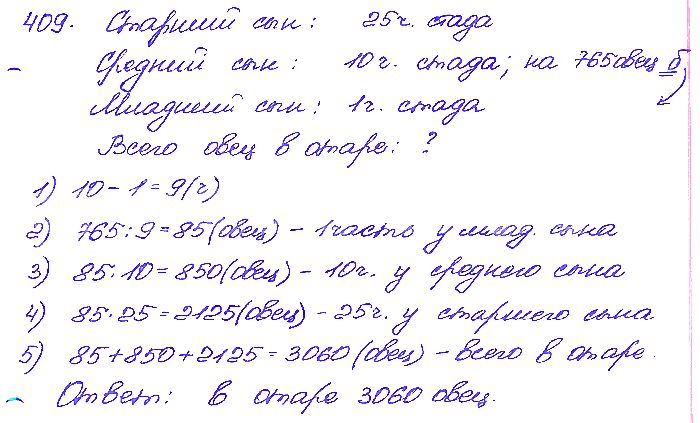 409. Старший сын: 25ч. стада
Средний сын: 10ч. стада; на 765 овец б.
Младший сын: 1ч. стада
Всего овец в отаре: ?
1) 10 - 1 = 9(ч)
2) 765 : 9 = 85 (овец) - 1 часть у млад. сына
3) 85 · 10 = 850 (овец) - 10ч. у среднего сына
4) 85 · 25 = 2125 (овец) - 25ч. у старшего сына
5) 85 + 850 + 2125 = 3060 (овец) - всего в отаре.
Ответ: в отаре 3060 овец.